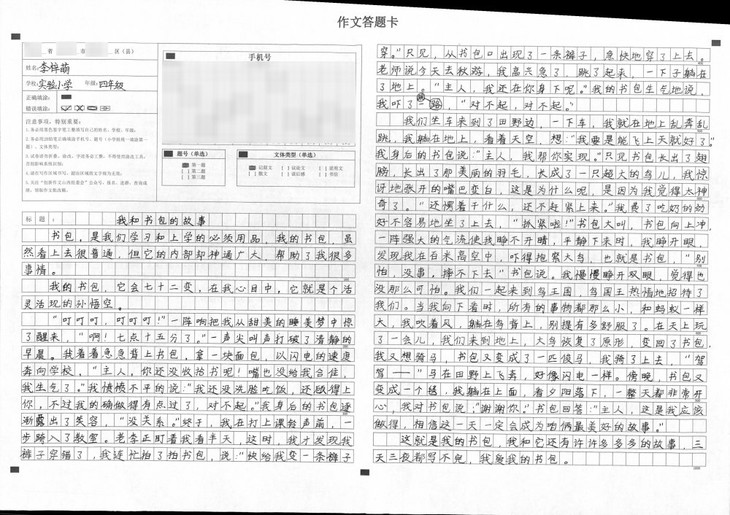 作文答题卡
省 市 区（县）
姓名：李梓萌
学校：实验小学 年级：四年级
正确填涂：
错误填涂：
注意事项，特别重要：
手机号
题号（单选）
第一题
第二题
第三题
文体类型（单选）
记叙文
说明文
散文
读后感
书信
标题：我和书包的故事
书包，是我们学习和上学的必须用品，我的书包，虽
然看上去很普通，但它的内部却神通广大，帮助了我很多
事情。
我的书包，它会七十二变，在我心目中，它就是个活
灵活现的孙悟空。
“叮叮叮，叮叮叮！”一阵响把我从甜美的睡美梦中惊
了醒来，“啊！七点十五分了。”一声尖叫声打破了清静的
早晨。我着着急急背上书包，拿一块面包，以闪电的速度
奔向学校，“主人，你还没收拾书呢！嘴也没给我合住，
我生气了。”我愤愤不平的说：“我还没洗脸吃饭，还顾得上
你，不过我的确做得有点过了，对不起。”我身后的书包逐
渐露出了笑容，“没关系。”终于，我在打上课铃声前，一
步踏入了教室。老李正盯着我看半天，这时，我才发现我
裤子穿错了，我连忙拍了拍书包，说：“快给我变一条裤子
穿。”只见，从书包口出现了一条裤子，愈快地穿了上去。
老师说今天去秋游，我高兴急了，跳了起来，一下子躺在
了地上。“主人，我还在你身下呢。”我的书包生气地说，
我吓了一跳，“对不起，对不起。”
我们坐车来到了田野边，一下车，我就在地上乱奔乱
跳，我躺在地上，看着天空，想：“我要是能飞上天就好了。”
我身后的书包说：“主人，我帮你实现。”只见书包长出了翅
膀，长出了那美丽的羽毛，长成了一只超大的鸟儿，我惊
讶地张开的嘴也变白，这是为什么呢，是因为我觉得太神
奇了，“还愣着干什么，还不赶紧上来。”我费了吃奶的劲
好不容易地坐了上去，“抓紧啦！”书包大叫，书包向上冲，
一阵强大的气流使我睁不开睛，平静下来时，我睁开眼，
发现我在百米高空中，吓得抱紧大鸟，也就是书包，“别
怕，没事，摔不下去”书包说。我慢慢睁开双眼，觉得也
没那么可怕。我们一起来到鸟王国，鸟国王热情地招待了
我们。当我向下看时，所有的事物都那么小，和蚂蚁一样
大，我吹着风，躺在鸟背上，别提有多舒服了。在天上玩
了一会儿，我们来到地上，大鸟恢复了原形，变回了书包，
我又想骑马，书包又变成了一匹骏马，我骑了上去，“驾
驾——”马在田野上飞去，好像闪电一样。傍晚，书包又
变成一个毯，我躺在上面，看夕阳落下，一整天都非常开
心，我对书包说：“谢谢你。”书包回答：“主人，这是我应该
做得，相信这一天一定会成为咱俩最美好的故事。”
这就是我的书包，我和它还有许许多多的故事，三
天三夜都写不完，我爱我的书包。